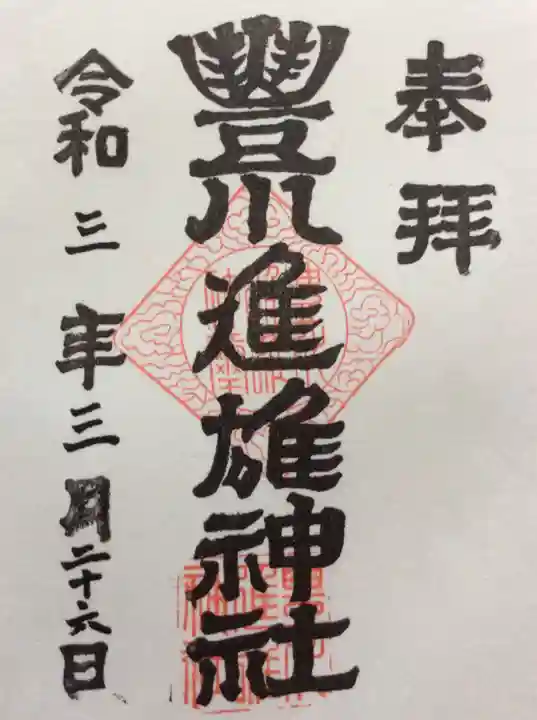 奉拝
豐川進雄神社
令和三年三月二十六日